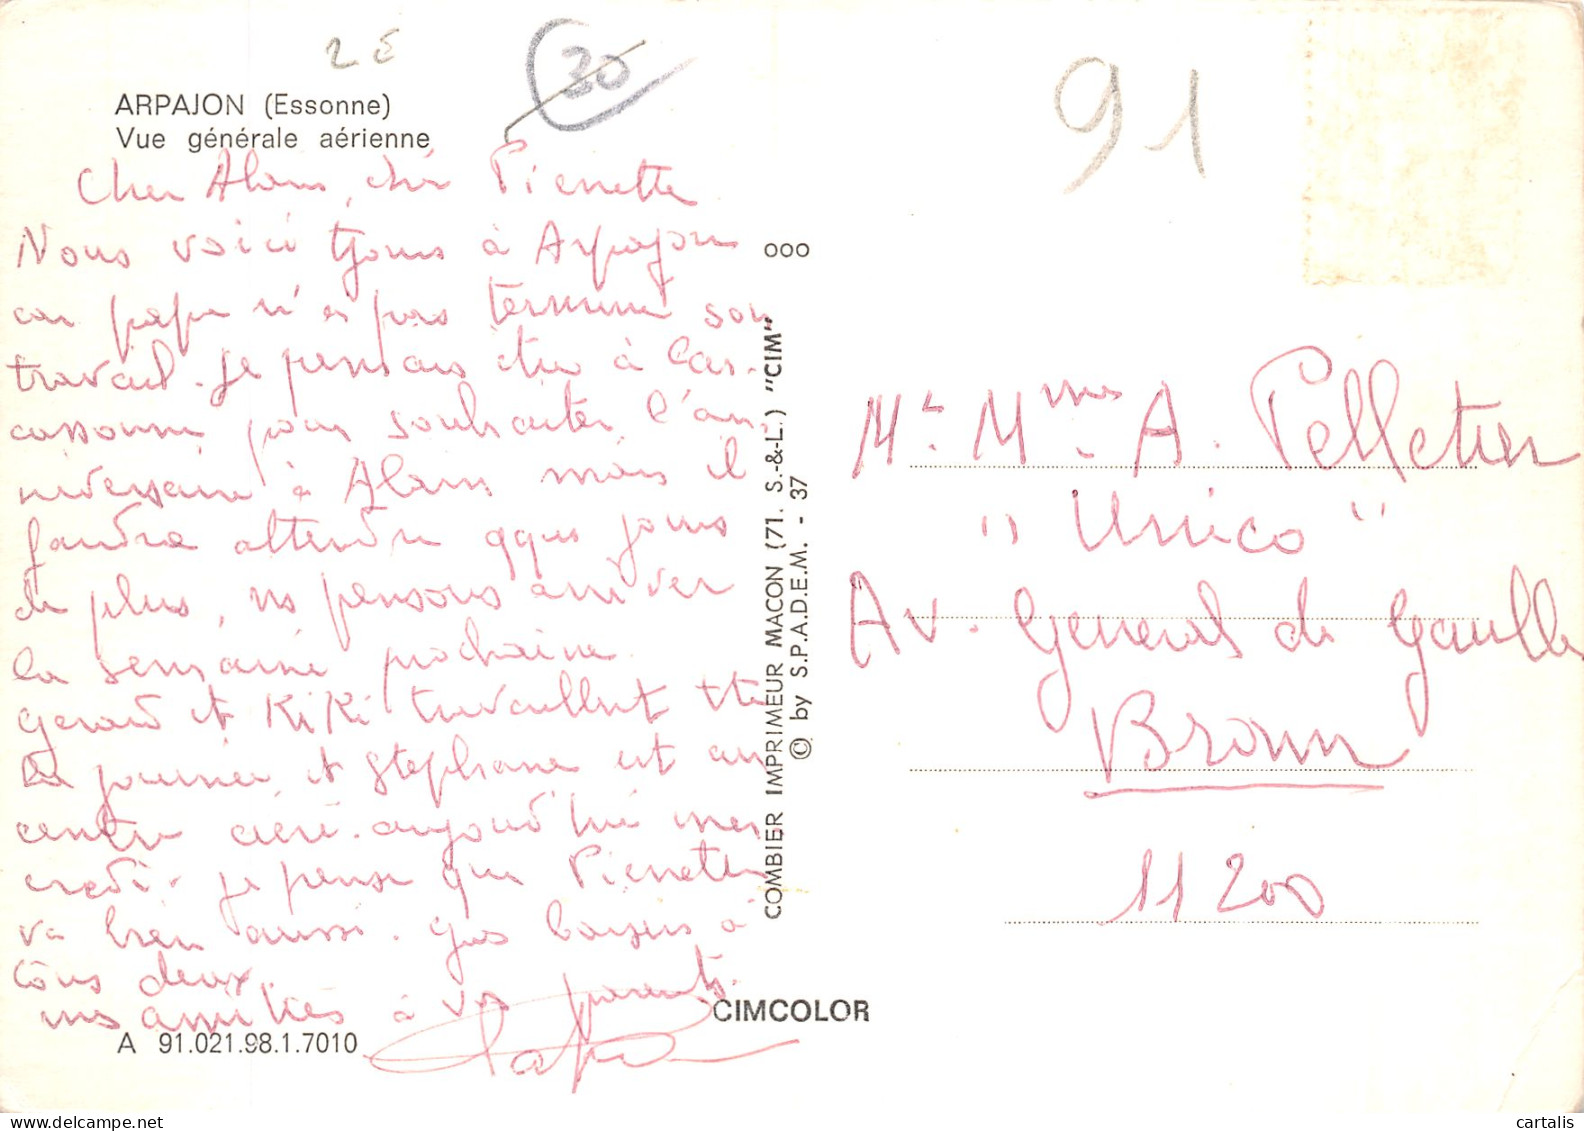 2 E
30
91
ARPAJON (Essonne)
Vue générale aérienne
Cher Alain, chère Pierrette
Nous voici tjours à Arpajon
car papa n'a pas terminé son
travail. Je pensais être à Car-
cassonne pour souhaiter l'an-
niversaire à Alain mais il
faudra attendre qques jours
de plus, ns pensons arriver
la semaine prochaine.
Gerard et KiKi travaillent tte
la journée, et Stephane est au
centre aéré. aujourd'hui mer
credi. Je pense que Pierrette
va bien aussi. Gros baisers à
tous deux.
nos amitiés à vos parents.
A 91.021.98.1.7010
ooo
COMBIER IMPRIMEUR MACON (71. S.-&-L.) "CIM"
© by S.P.A.D.E.M. - 37
CIMCOLOR
Mr. Mme A. Pelletier
"Unico"
Av. General de Gaulle
Bram
11200
cartalis
delcampe.net